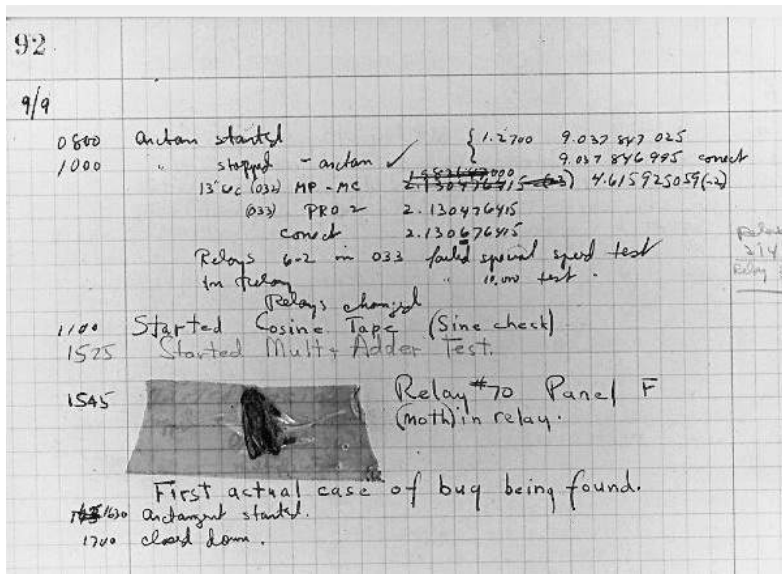 92
9/9
0800 arctan started { 1.2700 9.037 847 025
1000 " stopped - arctan ✓ 9.037 846 995 correct
13"uc (032) MP - MC 2.130476415 4.615925059(-2)
(033) PRO 2 2.130476415
correct 2.130676415
Relays 6-2 in 033 failed special speed test
in relay " 10.000 test .
Relays changed
Relay
1100 Started Cosine Tape (Sine check)
1525 Started Mult + Adder Test.
1545 Relay #70 Panel F
(moth) in relay.
First actual case of bug being found.
1630 arctangent started.
1700 closed down .